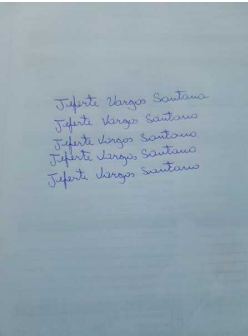 Jeferte Vargas Santana
Jeferte Vargas Santana
Jeferte Vargas Santana
Jeferte Vargas Santana
Jeferte Vargas Santana